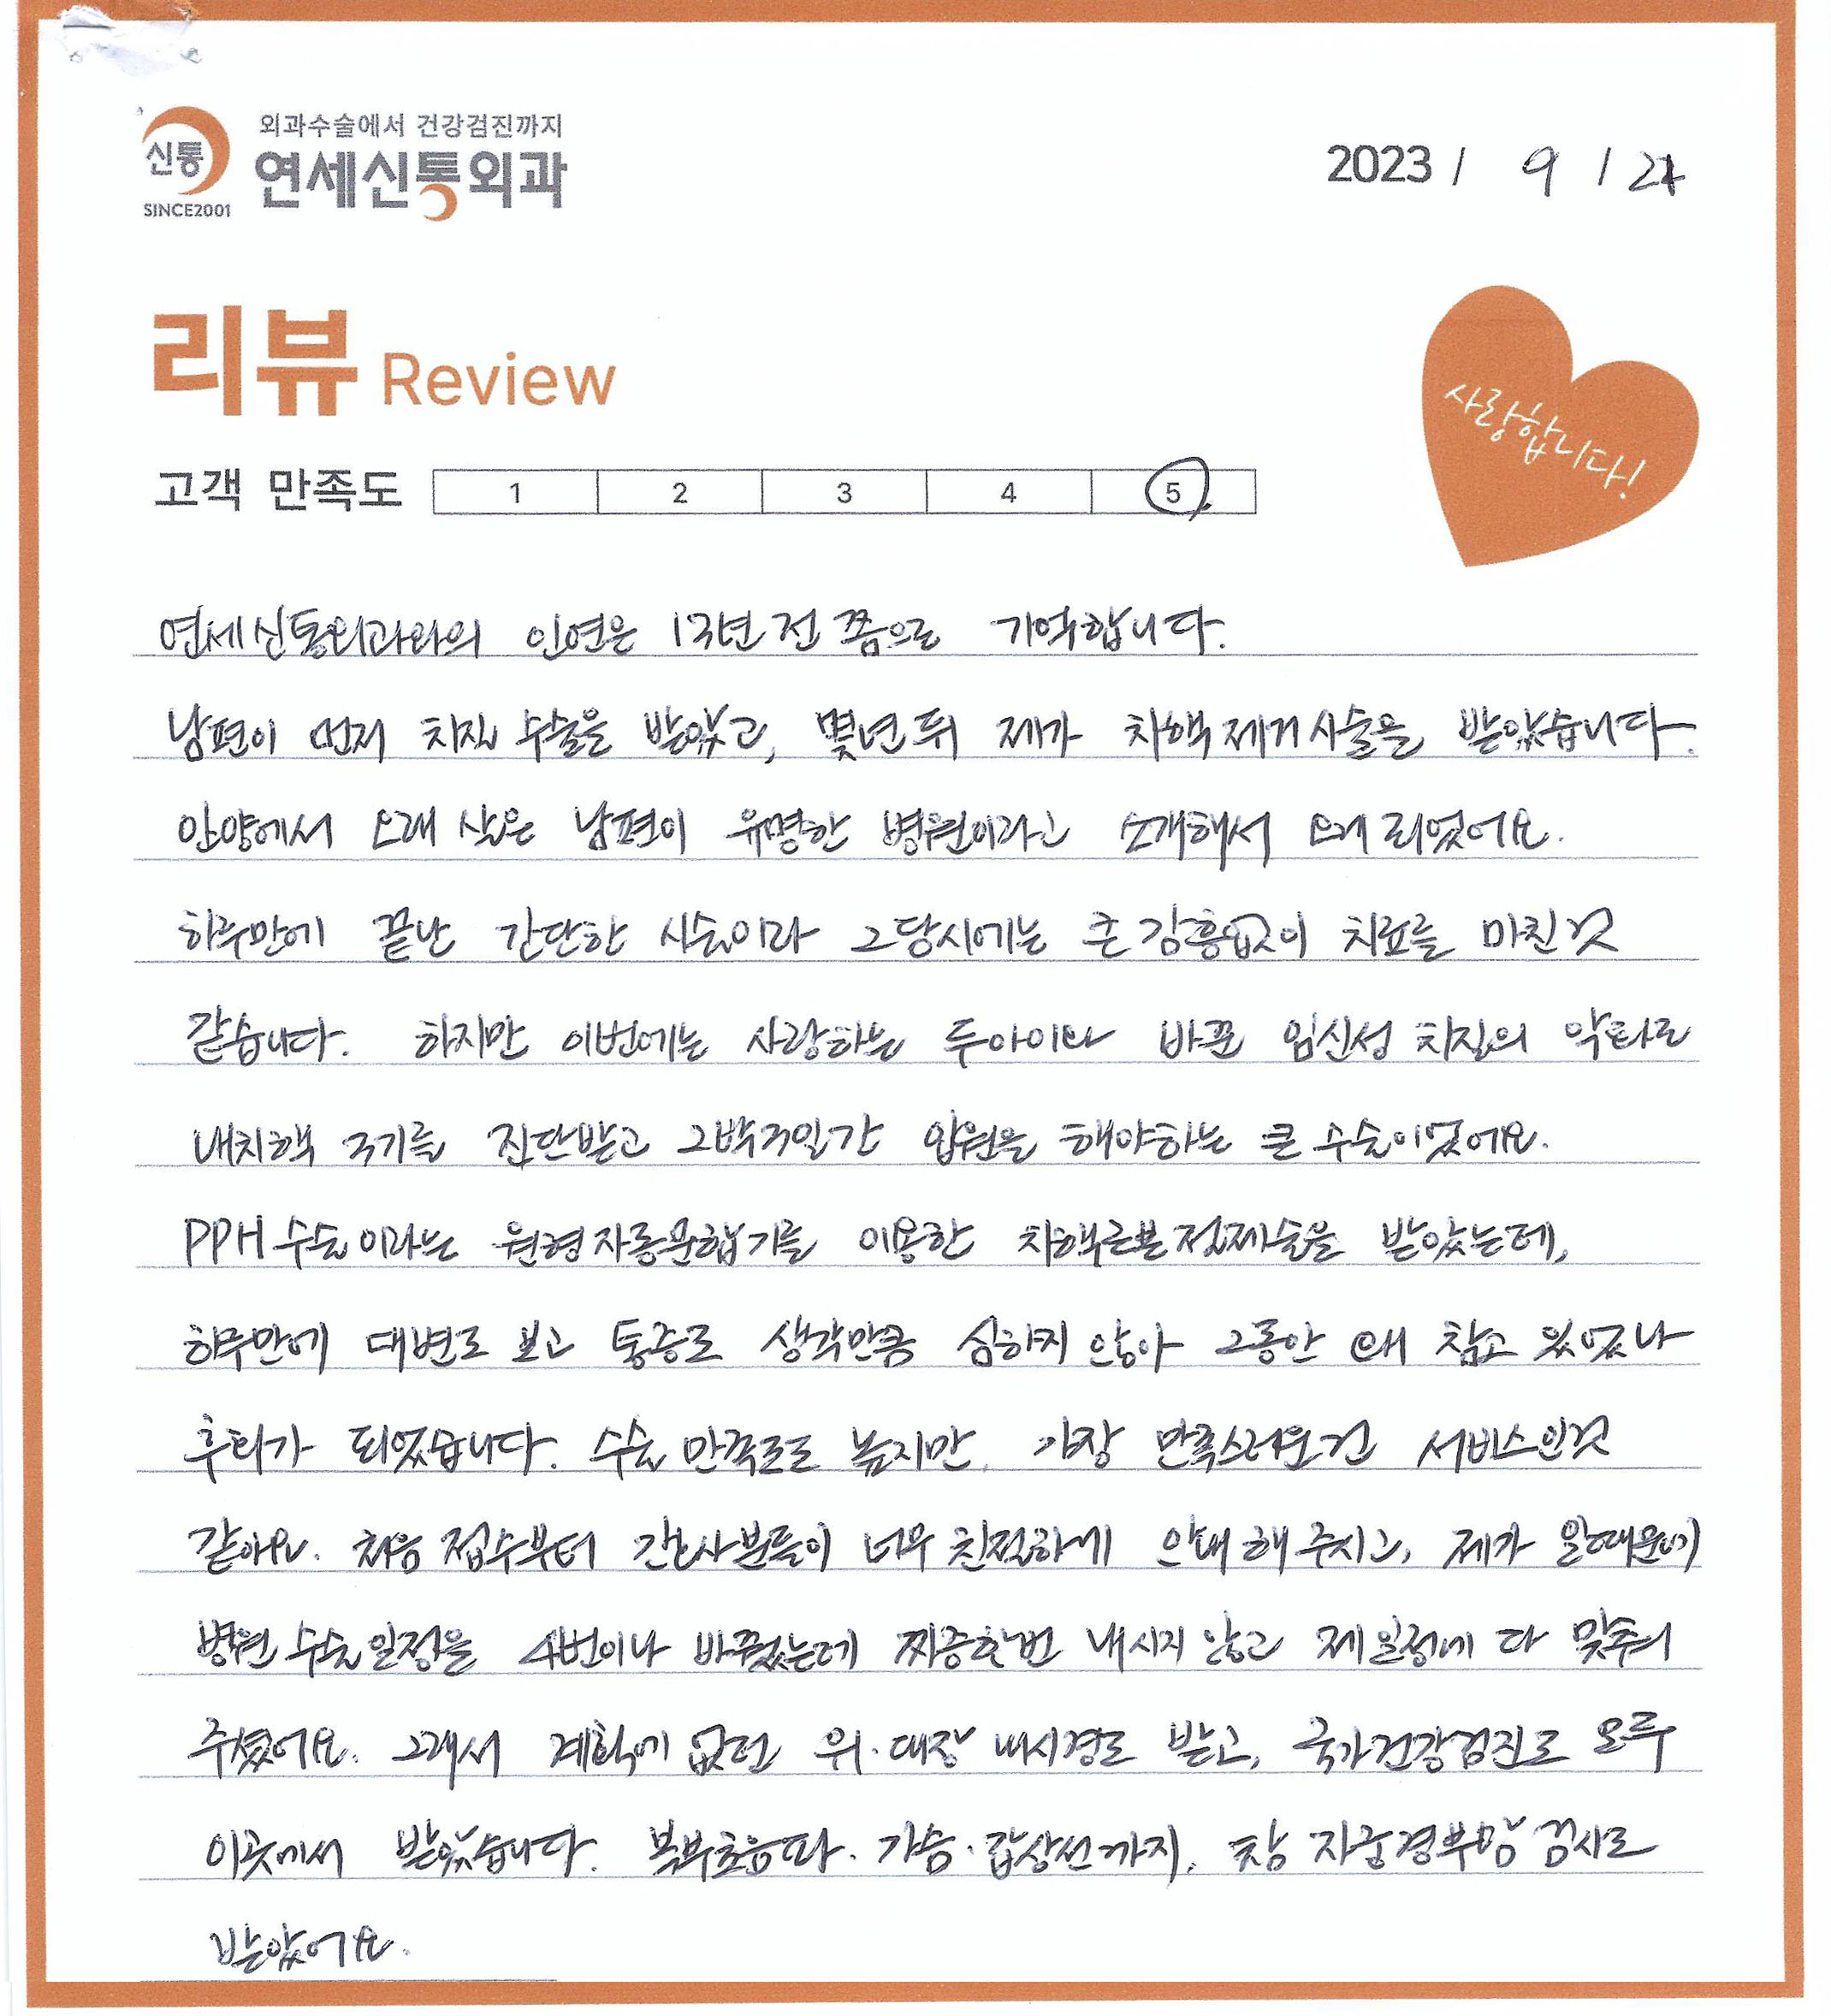 신통
SINCE2001
외과수술에서 건강검진까지
연세신통외과
2023 / 9 / 21
리뷰 Review
사랑합니다!
고객 만족도 1 2 3 4 5
연세신통외과와의 인연은 13년전 쯤으로 기억합니다.
남편이 먼저 치질 수술을 받았고, 몇년 뒤 제가 치핵제거시술을 받았습니다.
안양에서 오래 살은 남편이 유명한 병원이라고 소개해서 오게 되었어요.
하루만에 끝난 간단한 시술이라 그당시에는 큰 감흥없이 치료를 마친것
같습니다. 하지만 이번에는 사랑하는 두아이와 바꾼 임신성 치질의 악화로
내치핵 3기를 진단받고 2박3일간 입원을 해야하는 큰 수술이었어요.
PPH수술이라는 원형자동문합기를 이용한 치핵근본절제술을 받았는데,
하루만에 대변도 보고 통증도 생각만큼 심하지 않아 그동안 왜 참고 있었나
후회가 되었습니다. 수술 만족도도 높지만, 가장 만족스러운건 서비스인것
같아요. 처음 접수부터 간호사분들이 너무 친절하게 안내 해 주시고, 제가 일때문에
병원 수술일정을 4번이나 바꿨는데 짜증한번 내시지 않고 제일정에 다 맞춰
주셨어요. 그래서 계획에 없던 위·대장 내시경도 받고, 국가건강검진도 모두
이곳에서 받았습니다. 복부초음파·가슴·갑상선까지. 참 자궁경부암 검사도
받았어요.